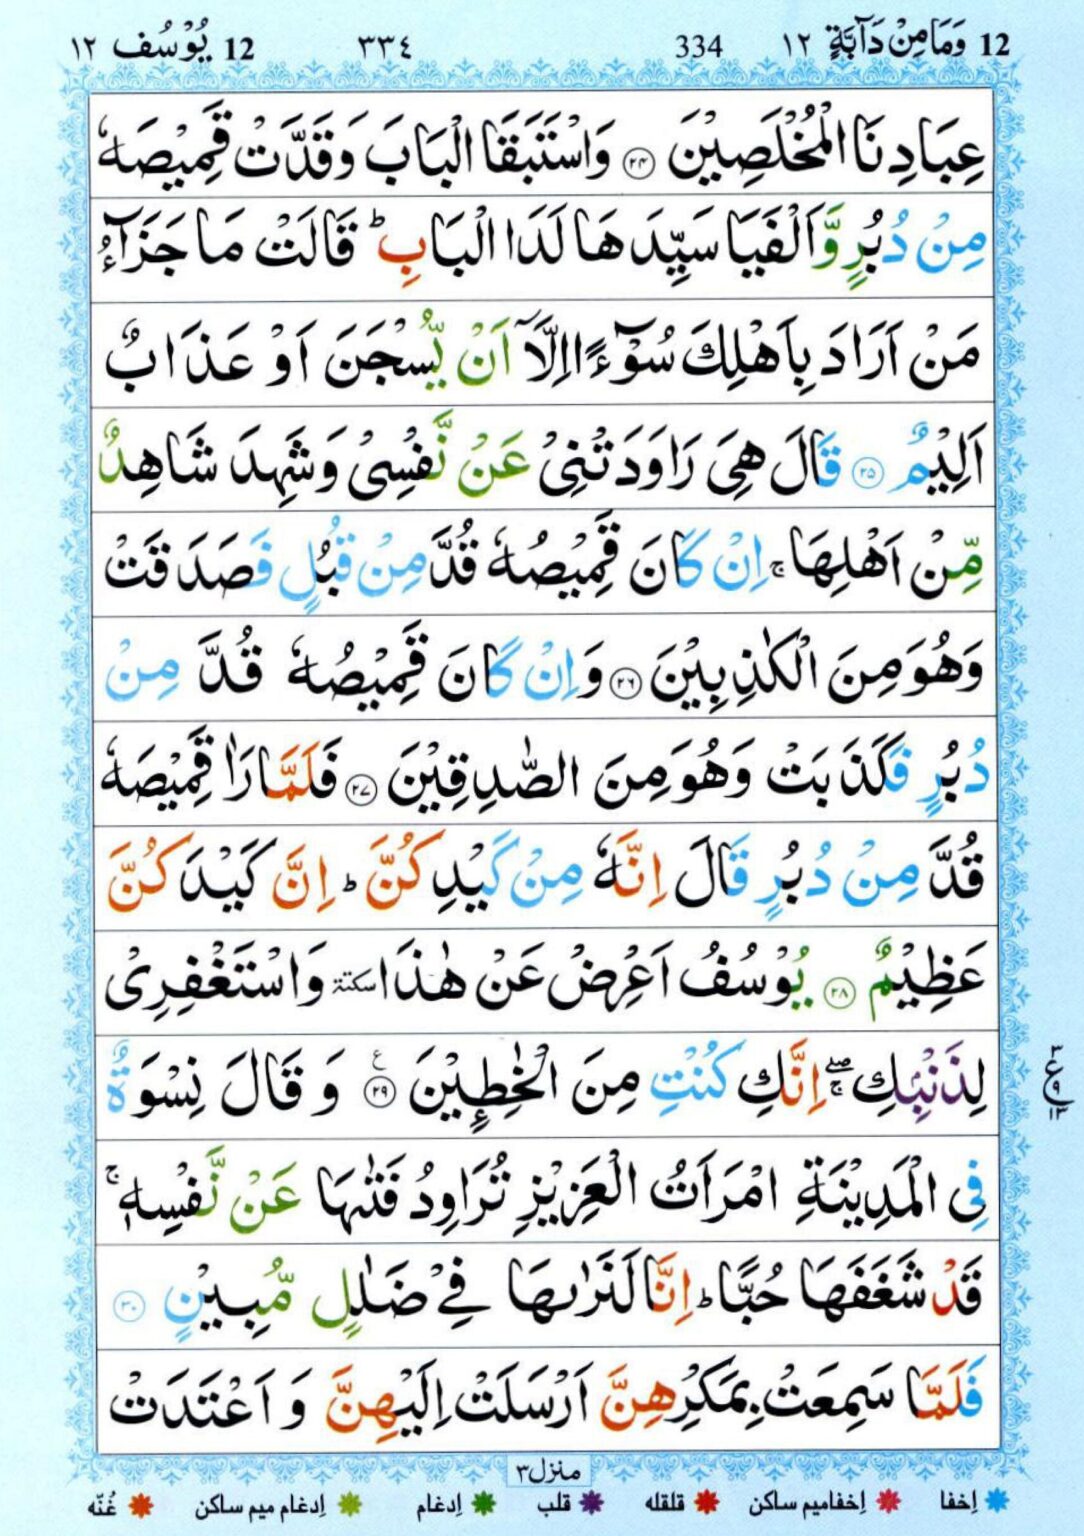 12 وَمَا مِنْ دَآبَّةٍ ١٢ 334 ٣٣٤ 12 يُوْسُف ١٢
عِبَادِنَا الْمُخْلَصِيْنَ ﴿۲۴﴾ وَاسْتَبَقَا الْبَابَ وَقَدَّتْ قَمِيْصَهٗ
مِنْ دُبُرٍ وَّاَلْفَيَا سَيِّدَهَا لَدَا الْبَابِ ؕ قَالَتْ مَا جَزَآءُ
مَنْ اَرَادَ بِاَهْلِكَ سُوْٓءًا اِلَّاۤ اَنْ يُّسْجَنَ اَوْ عَذَابٌ
اَلِيْمٌ ﴿۲۵﴾ قَالَ هِىَ رَاوَدَتْنِىْ عَنْ نَّفْسِىْ وَشَهِدَ شَاهِدٌ
مِّنْ اَهْلِهَا ۚ اِنْ كَانَ قَمِيْصُهٗ قُدَّ مِنْ قُبُلٍ فَصَدَقَتْ
وَهُوَ مِنَ الْكٰذِبِيْنَ ﴿۲۶﴾ وَاِنْ كَانَ قَمِيْصُهٗ قُدَّ مِنْ
دُبُرٍ فَكَذَبَتْ وَهُوَ مِنَ الصّٰدِقِيْنَ ﴿۲۷﴾ فَلَمَّا رَاٰ قَمِيْصَهٗ
قُدَّ مِنْ دُبُرٍ قَالَ اِنَّهٗ مِنْ كَيْدِكُنَّ ؕ اِنَّ كَيْدَكُنَّ
عَظِيْمٌ ﴿۲۸﴾ يُوْسُفُ اَعْرِضْ عَنْ هٰذَا سكتة وَاسْتَغْفِرِىْ
لِذَنْۢبِكِ ۖۚ اِنَّكِ كُنْتِ مِنَ الْخٰطِـِٕيْنَ ﴿۲۹﴾ ع وَقَالَ نِسْوَةٌ
فِى الْمَدِيْنَةِ امْرَاَتُ الْعَزِيْزِ تُرَاوِدُ فَتٰٮهَا عَنْ نَّفْسِهٖ ۚ
قَدْ شَغَفَهَا حُبًّا ؕ اِنَّا لَنَرٰٮهَا فِىْ ضَلٰلٍ مُّبِيْنٍ ﴿۳۰﴾
فَلَمَّا سَمِعَتْ بِمَكْرِهِنَّ اَرْسَلَتْ اِلَيْهِنَّ وَاَعْتَدَتْ
منزل ٣
اِخفا اِخفامیم ساکن قلقله قلب اِدغام اِدغام میم ساکن غُنّه